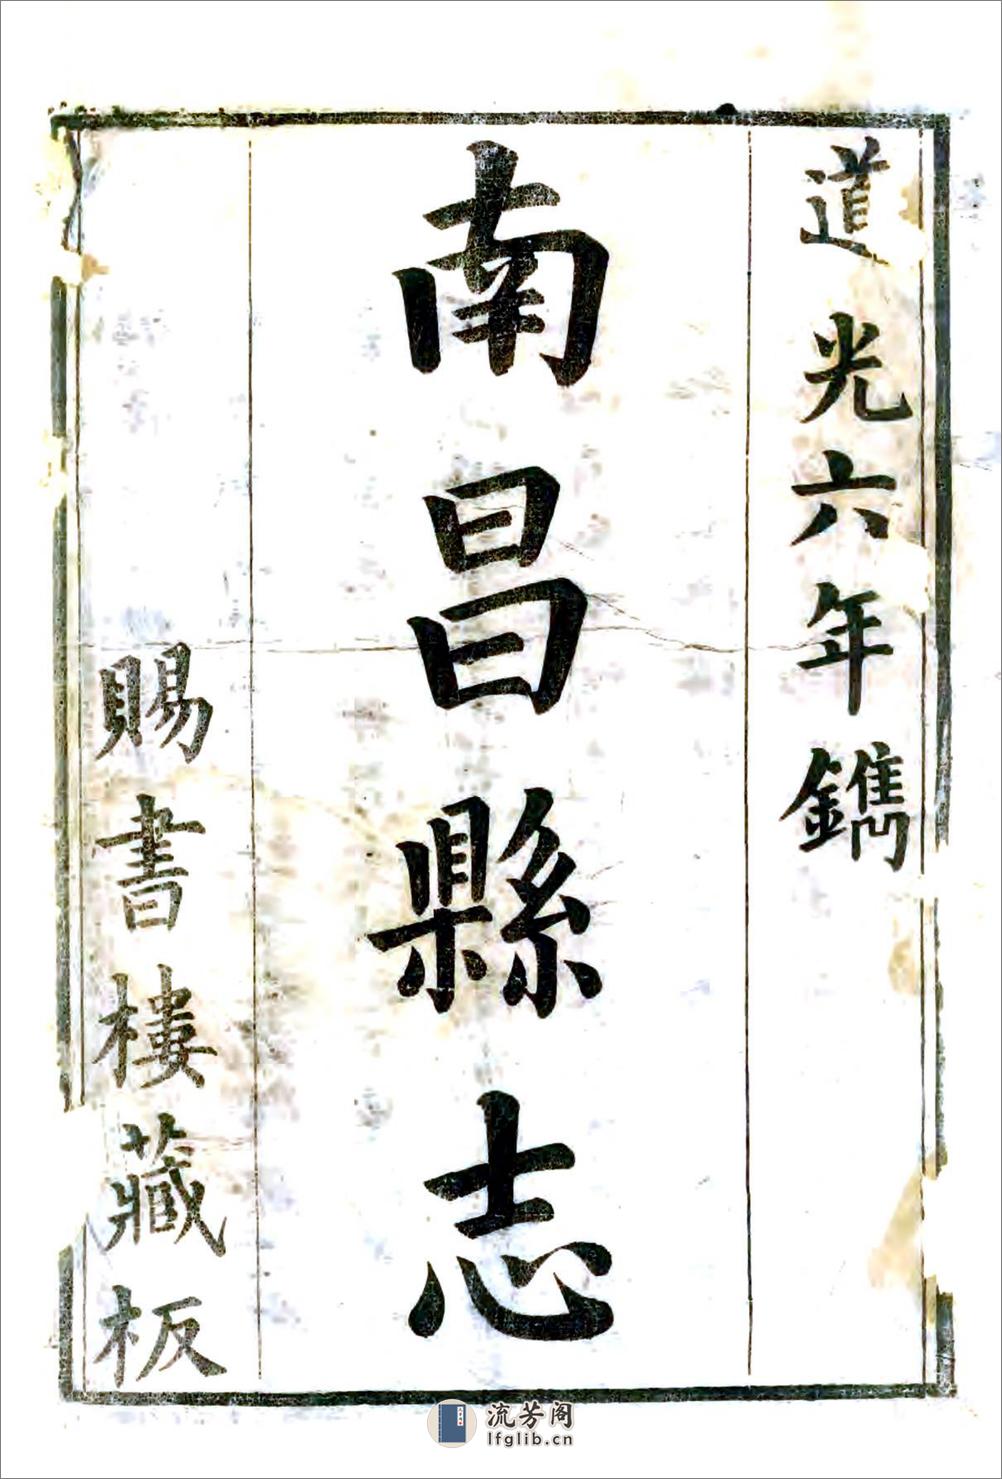 道光六年鐫
南昌縣志
賜書樓藏板
流芳阁
lfglib.cn